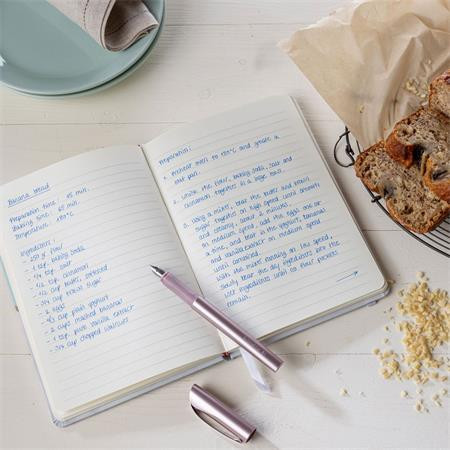 Banana bread
Preparation time: 15 min.
Baking time: 65 min.
Temperature: 180°C
Ingredients:
- 250 g flour
- 1 tsp. baking soda
- 1/4 tsp. salt
- 1/2 tsp. cinnamon
- 1/2 cup butter, softened
- 3/4 cup brown sugar
- 2 eggs
- 1/3 cup plain yoghurt
- 2 cups mashed bananas
- 1 tsp pure vanilla extract
- 3/4 cup chopped walnuts
Preparation:
1. Preheat oven to 180°C and grease a
loaf pan.
2. Whisk the flour, baking soda, salt and
cinnamon together in a large bowl.
3. Using a mixer, beat the butter and brown
sugar together on high speed until smooth
and creamy, about 2 minutes.
on medium speed, add the eggs one at
a time, and beat in the yoghurt, bananas
and vanilla extract on medium speed
until combined.
With the mixer running on low speed,
slowly beat the dry ingredients into the
wet ingredients until no flour pockets
remain.